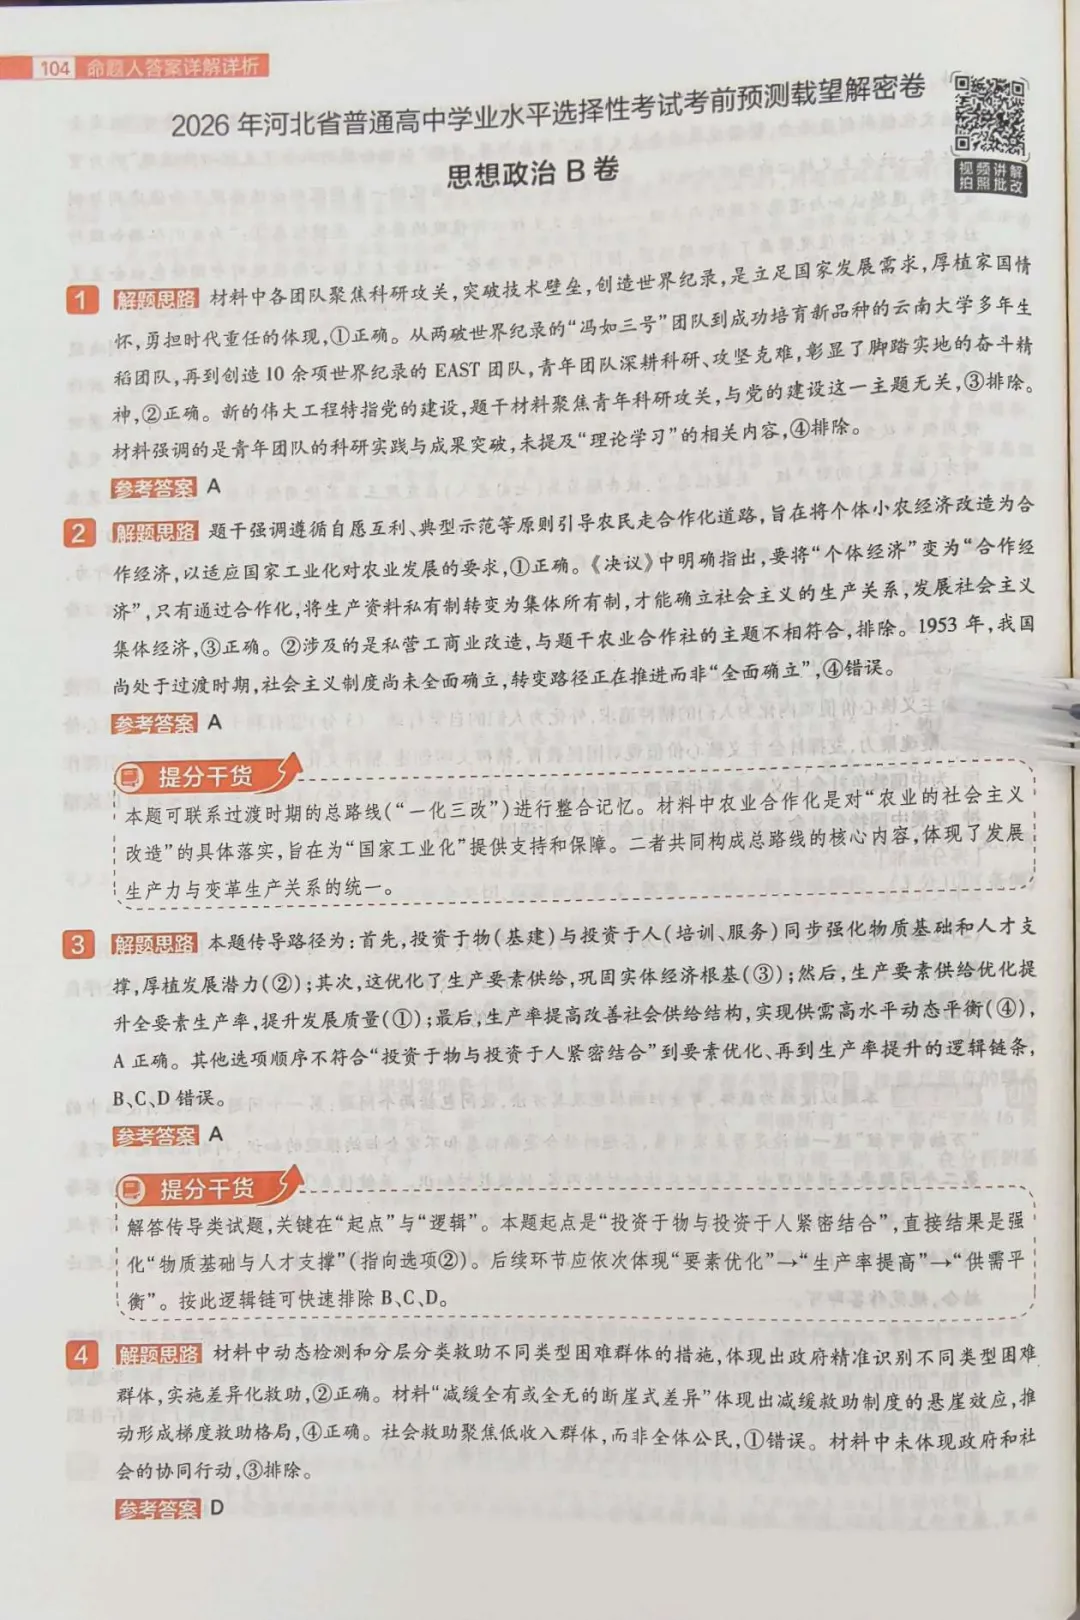 104 命题人答案详解详析
2026 年河北省普通高中学业水平选择性考试考前预测载望解密卷
视频讲解
拍照批改
思想政治 B 卷
1 解题思路 材料中各团队聚焦科研攻关,突破技术壁垒,创造世界纪录,是立足国家发展需求,厚植家国情
怀,勇担时代重任的体现,①正确。从两破世界纪录的“冯如三号”团队到成功培育新品种的云南大学多年生
稻团队,再到创造 10 余项世界纪录的 EAST 团队,青年团队深耕科研、攻坚克难,彰显了脚踏实地的奋斗精
神,②正确。新的伟大工程特指党的建设,题干材料聚焦青年科研攻关,与党的建设这一主题无关,③排除。
材料强调的是青年团队的科研实践与成果突破,未提及“理论学习”的相关内容,④排除。
参考答案 A
2 解题思路 题干强调遵循自愿互利、典型示范等原则引导农民走合作化道路,旨在将个体小农经济改造为合
作经济,以适应国家工业化对农业发展的要求,①正确。《决议》中明确指出,要将“个体经济”变为“合作经
济”,只有通过合作化,将生产资料私有制转变为集体所有制,才能确立社会主义的生产关系,发展社会主义
集体经济,③正确。②涉及的是私营工商业改造,与题干农业合作社的主题不相符合,排除。1953 年,我国
尚处于过渡时期,社会主义制度尚未全面确立,转变路径正在推进而非“全面确立”,④错误。
参考答案 A
提分干货
本题可联系过渡时期的总路线(“一化三改”)进行整合记忆。材料中农业合作化是对“农业的社会主义
改造”的具体落实,旨在为“国家工业化”提供支持和保障。二者共同构成总路线的核心内容,体现了发展
生产力与变革生产关系的统一。
3 解题思路 本题传导路径为:首先,投资于物(基建)与投资于人(培训、服务)同步强化物质基础和人才支
撑,厚植发展潜力(②);其次,这优化了生产要素供给,巩固实体经济根基(③);然后,生产要素供给优化提
升全要素生产率,提升发展质量(①);最后,生产率提高改善社会供给结构,实现供需高水平动态平衡(④),
A 正确。其他选项顺序不符合“投资于物与投资于人紧密结合”到要素优化、再到生产率提升的逻辑链条,
B、C、D 错误。
参考答案 A
提分干货
解答传导类试题,关键在“起点”与“逻辑”。本题起点是“投资于物与投资于人紧密结合”,直接结果是强
化“物质基础与人才支撑”(指向选项②)。后续环节应依次体现“要素优化”→“生产率提高”→“供需平
衡”。按此逻辑链可快速排除 B、C、D。
4 解题思路 材料中动态检测和分层分类救助不同类型困难群体的措施,体现出政府精准识别不同类型困难
群体,实施差异化救助,②正确。材料“减缓全有或全无的断崖式差异”体现出减缓救助制度的悬崖效应,推
动形成梯度救助格局,④正确。社会救助聚焦低收入群体,而非全体公民,①错误。材料中未体现政府和社
会的协同行动,③排除。
参考答案 D